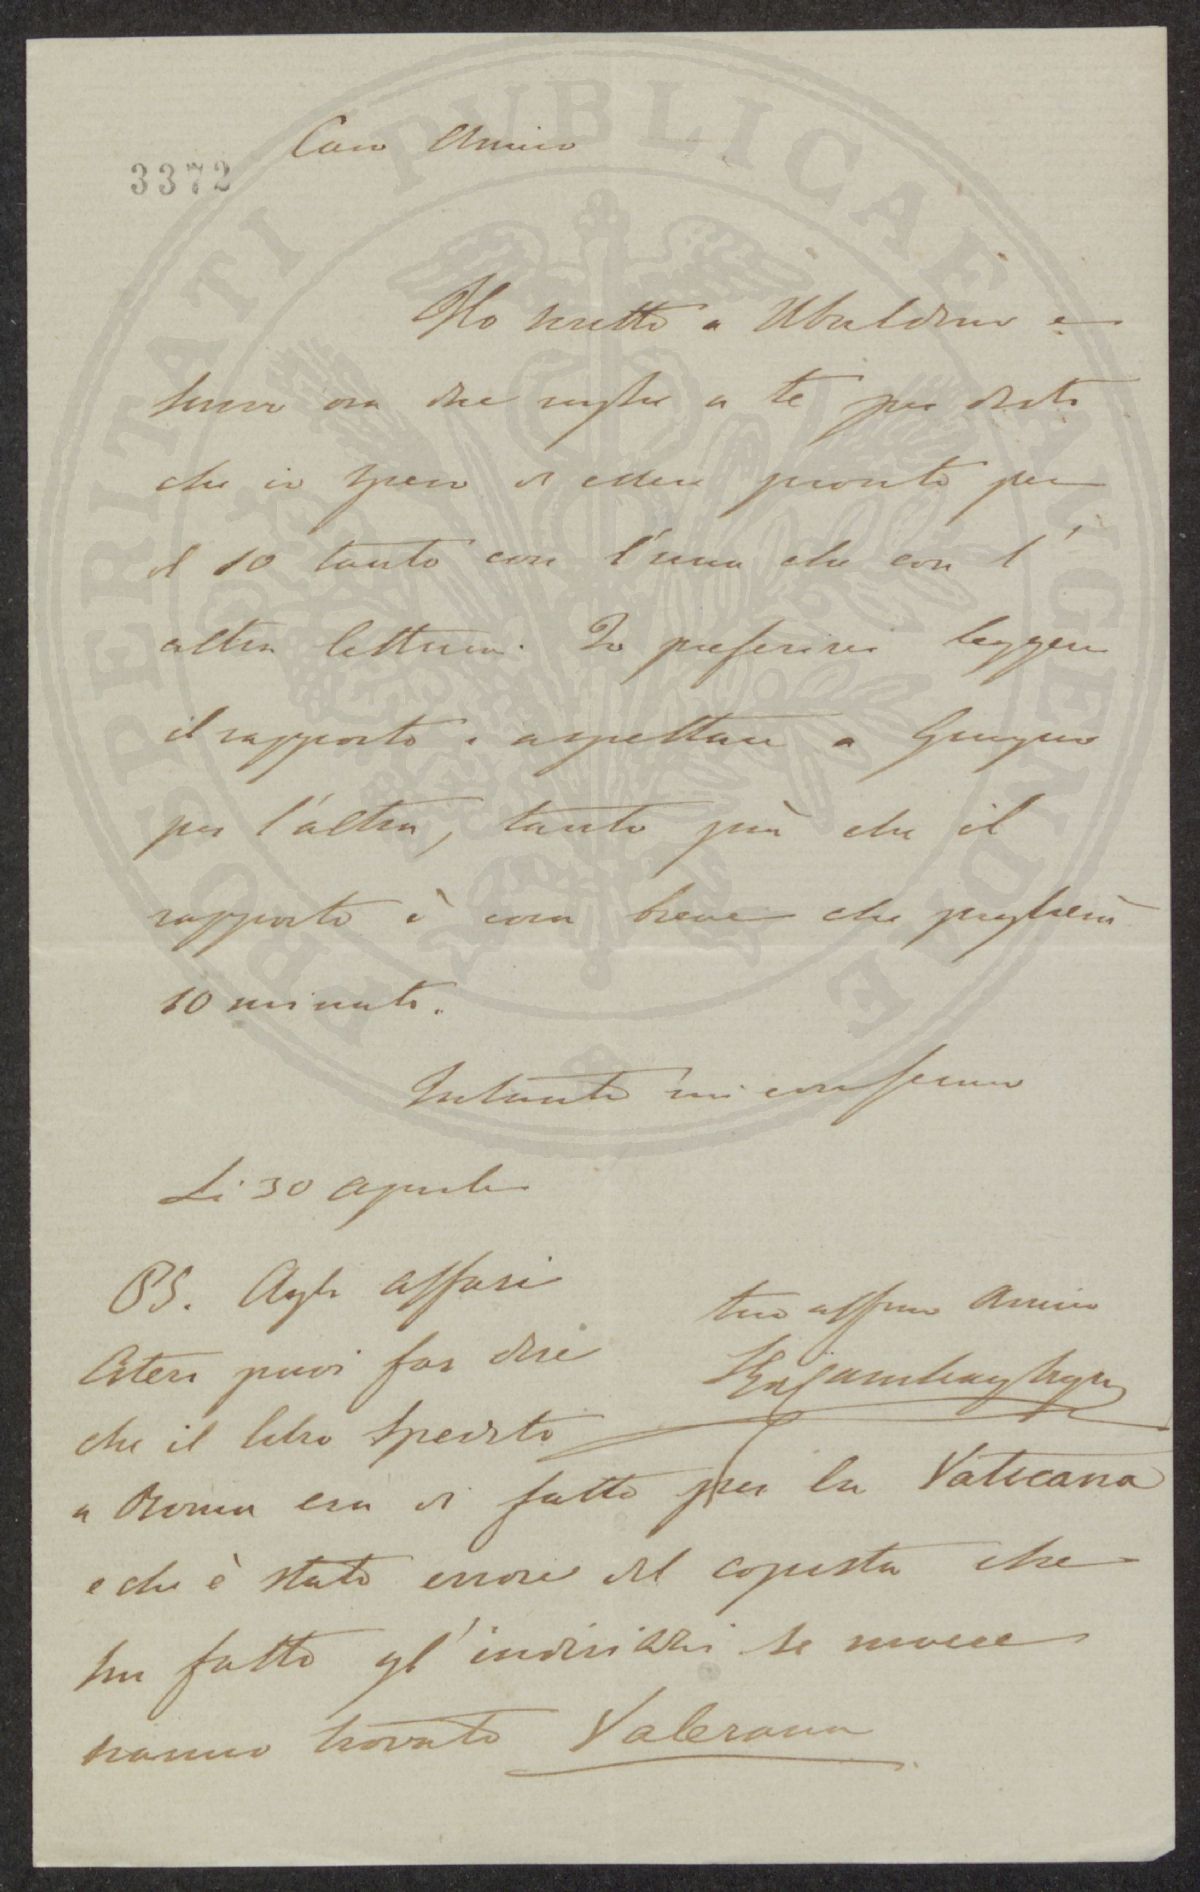 Caro Amico
3372
Ho scritto a Ubaldino e
scrivo ora due righe a te per dirti
che io spero di essere pronto per
il 10 tanto con l'una che con l'
altra lettura. Io preferirei leggere
il rapporto e aspettare a Giugno
per l'altra, tanto più che il
rapporto è cosa breve che piglierà
10 minuti.
Intanto mi confermo
Li 30 Aprile
PS. Agli affari
Esteri puoi far dire
che il libro spedito
a Roma era di fatto per la Vaticana
e che è stato errore del copista che
ha fatto gl'indirizzi se invece
hanno trovato Valerana
tuo affmo Amico
PROSPERITATI PUBLICAE AUGENDAE